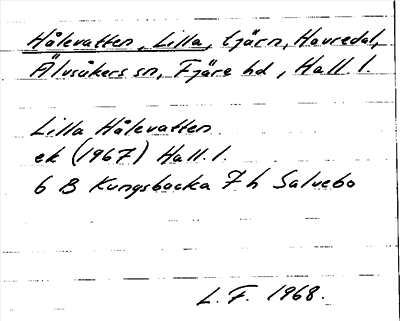 Hålevatten, Lilla, tjärn, Havredal,
Älvsåkers sn, Fjäre hd, Hall. l.
Lilla Hålevatten
ek (1967) Hall. l.
6 B Kungsbacka 7 h Salvebo
L. F. 1968.